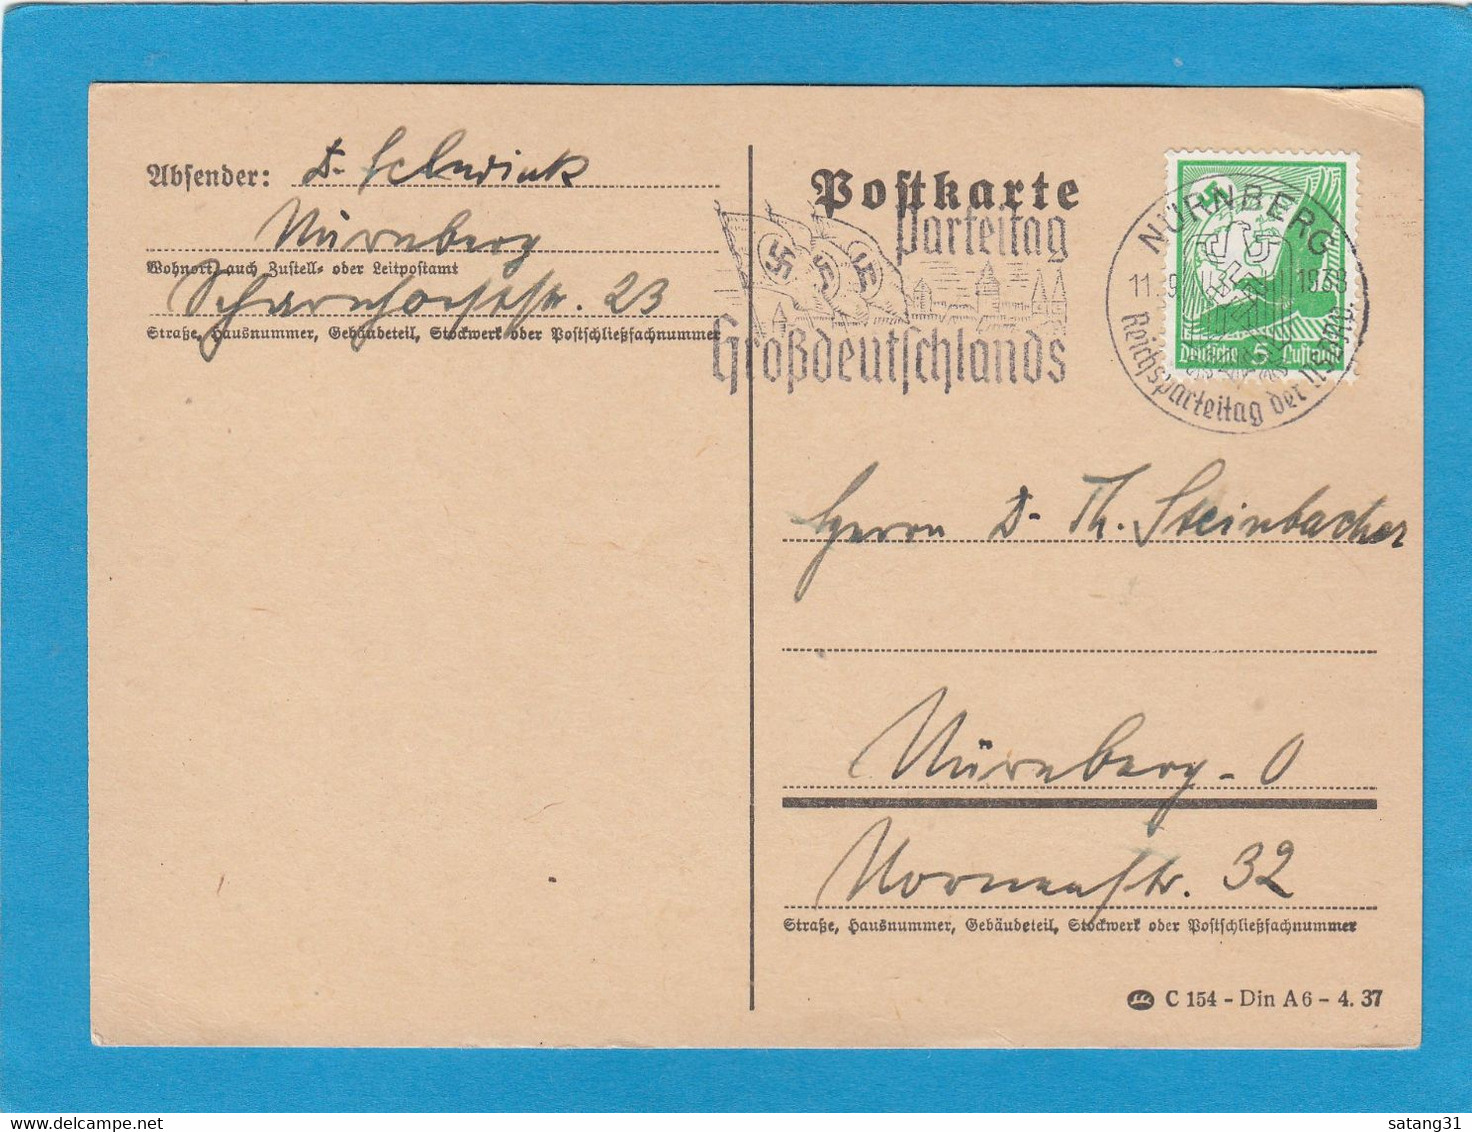 Absender: D. Schwink
Nürnberg
Wohnort, auch Zustell- oder Leitpostamt
Scharnhorststr. 23
Straße, Hausnummer, Gebäudeteil, Stockwerk oder Postschließfachnummer
Postkarte
Parteitag
Großdeutschlands
NÜRNBERG
11.9. 1938
Reichsparteitag der NSDAP.
Deutsche 5 Luftpost
Herrn D. Th. Steinbacher
Nürnberg-O
Nornenstr. 32
Straße, Hausnummer, Gebäudeteil, Stockwerk oder Postschließfachnummer
C 154 - Din A 6 - 4. 37
satang31